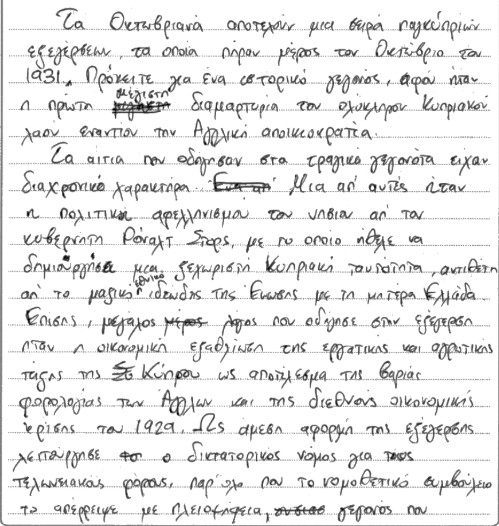 Τα Οκτωβριανά αποτελούν μια σειρά παγκύπριων
εξεγέρσεων, τα οποία πήραν μέρος τον Οκτώβριο του
1931. Πρόκειτε για ένα ιστορικό γεγονός, αφού ήταν
η πρώτη μέγιστη διαμαρτυρία του ολόκληρου Κυπριακού
λαού εναντίον την Αγγλική αποικιοκρατία.
Τα αίτια που οδήγησαν στα τραγικά γεγονότα είχαν
διαχρονικό χαρακτήρα. Μια απ' αυτές ήταν
η πολιτική αφελληνισμού του νησιού απ' τον
κυβερνήτη Ρόναλτ Στορς, με το οποίο ήθελε να
δημιουργήσει μια ξεχωριστή Κυπριακή ταυτότητα, αντίθετη
απ' το μαζικό εθνικό ιδεώδης της Ένωσης με τη μητέρα Ελλάδα.
Επίσης, μεγάλος λόγος που οδήγησε στην εξέγερση
ήταν η οικονομική εξαθλίωση της εργατικής και αγροτικής
τάξης της Κύπρου ως αποτέλεσμα της βαριάς
φορολογίας των Άγγλων και της διεθνούς οικονομικής
κρίσης του 1929. Ως άμεση αφορμή της εξέγερσης
λειτούργησε ο δικτατορικός νόμος για τους
τελωνειακούς φόρους, παρ' όλο που το νομοθετικό συμβούλιο
το απέρριψε με πλειοψηφεία, γεγονός που